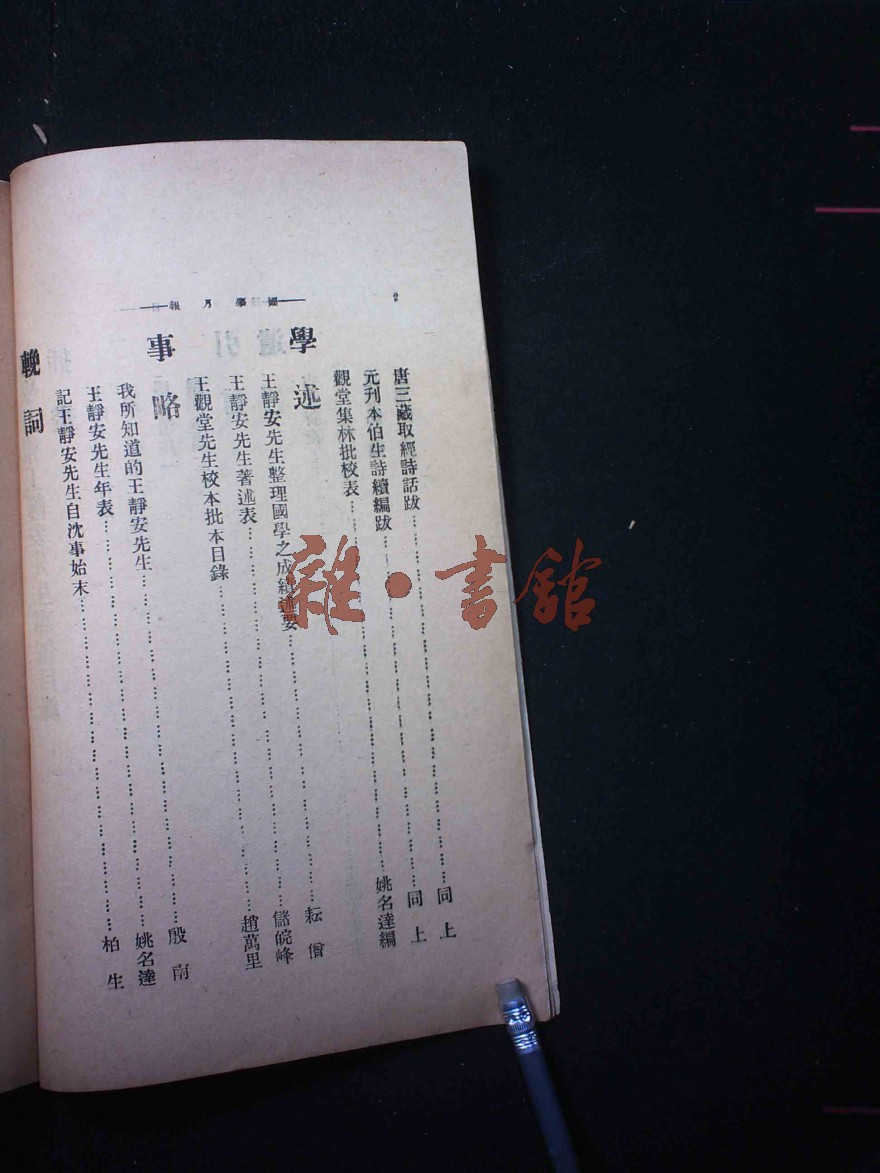 國學月報
唐三藏取經詩話跋………同上
元刊本伯生詩續編跋………同上
觀堂集林批校表………姚名達編
學述
王靜安先生整理國學之成績述要………耘僧
王靜安先生著述表………儲皖峰
王觀堂先生校本批本目錄………趙萬里
事略
我所知道的王靜安先生………殷南
王靜安先生年表………姚名達
記王靜安先生自沈事始末………柏生
輓詞
雜·書館